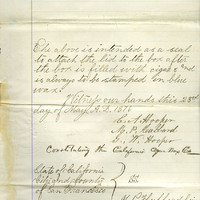 The above is intended as a seal
to attach the lid to the box after
the box is filled with cigars and
is always to be stamped in blue
wax.
Witness our hands this 23rd
day of May A.D. 1876
C. A. Hooper
M. P. Ballard
W. Hooper
Constituting the California Cigar Box Co
State of California
City and County
of San Francisco
SS